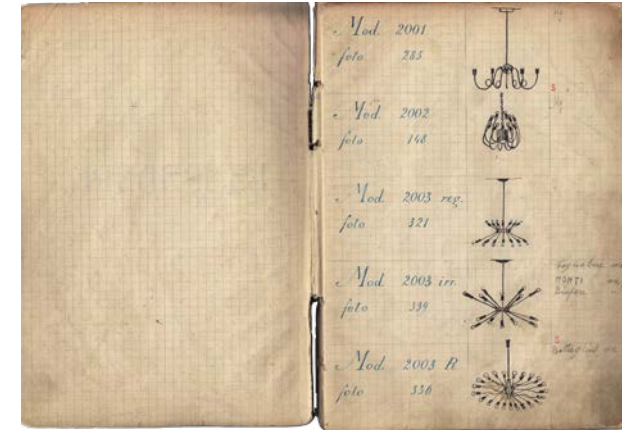 Mod. 2001
foto 285
Mod. 2002
foto 148
Mod. 2003 reg.
foto 321
Mod. 2003 irr.
MONTI
foto 339
Mod. 2003 R
foto 336